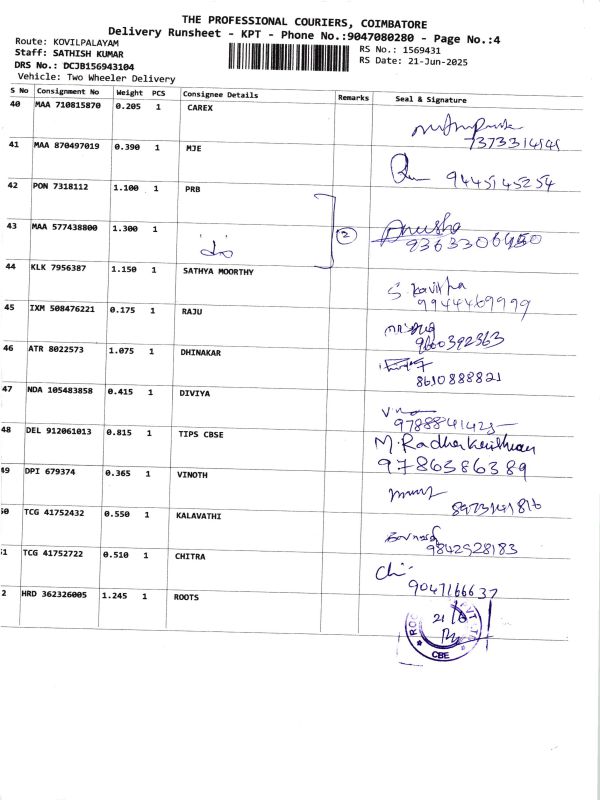 THE PROFESSIONAL COURIERS, COIMBATORE
Delivery Runsheet - KPT - Phone No.:9047080280 - Page No.:4
Route: KOVILPALAYAM
Staff: SATHISH KUMAR
DRS No.: DCJB156943104
Vehicle: Two Wheeler Delivery
RS No.: 1569431
RS Date: 21-Jun-2025
S No Consignment No Weight PCS Consignee Details Remarks Seal & Signature
40 MAA 710815870 0.205 1 CAREX
41 MAA 870497019 0.390 1 MJE
9445145254
42 PON 7318112 1.100 1 PRB
43 MAA 577438800 1.300 1 2 Anusha
44 KLK 7956387 1.150 1 SATHYA MOORTHY
S Kavitha
9944469999
45 IXM 508476221 0.175 1 RAJU
9660392363
46 ATR 8022573 1.075 1 DHINAKAR
8610888821
47 NDA 105483858 0.415 1 DIVIYA
48 DEL 912061013 0.815 1 TIPS CBSE
M. Radha Krishnan
9786386389
49 DPI 679374 0.365 1 VINOTH
8973141816
50 TCG 41752432 0.550 1 KALAVATHI
9842528183
51 TCG 41752722 0.510 1 CHITRA
9047166637
2 HRD 362326005 1.245 1 ROOTS
21/6
CBE